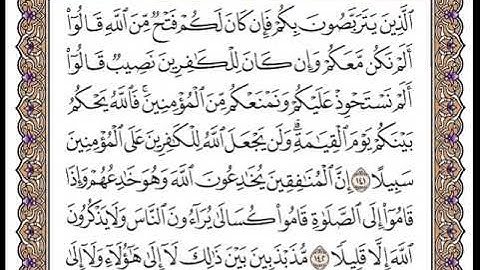 ٱلَّذِينَ يَتَرَبَّصُونَ بِكُمْ فَإِن كَانَ لَكُمْ فَتْحٌ مِّنَ ٱللَّهِ قَالُوٓا۟
أَلَمْ نَكُن مَّعَكُمْ وَإِن كَانَ لِلْكَٰفِرِينَ نَصِيبٌ قَالُوٓا۟
أَلَمْ نَسْتَحْوِذْ عَلَيْكُمْ وَنَمْنَعْكُم مِّنَ ٱلْمُؤْمِنِينَ ۚ فَٱللَّهُ يَحْكُمُ
بَيْنَكُمْ يَوْمَ ٱلْقِيَٰمَةِ ۗ وَلَن يَجْعَلَ ٱللَّهُ لِلْكَٰفِرِينَ عَلَى ٱلْمُؤْمِنِينَ
سَبِيلًا ١٤١ إِنَّ ٱلْمُنَٰفِقِينَ يُخَٰدِعُونَ ٱللَّهَ وَهُوَ خَٰدِعُهُمْ وَإِذَا
قَامُوٓا۟ إِلَى ٱلصَّلَوٰةِ قَامُوا۟ كُسَالَىٰ يُرَآءُونَ ٱلنَّاسَ وَلَا يَذْكُرُونَ
ٱللَّهَ إِلَّا قَلِيلًا ١٤٢ مُّذَبْذَبِينَ بَيْنَ ذَٰلِكَ لَآ إِلَىٰ هَٰٓؤُلَآءِ وَلَآ إِلَىٰ